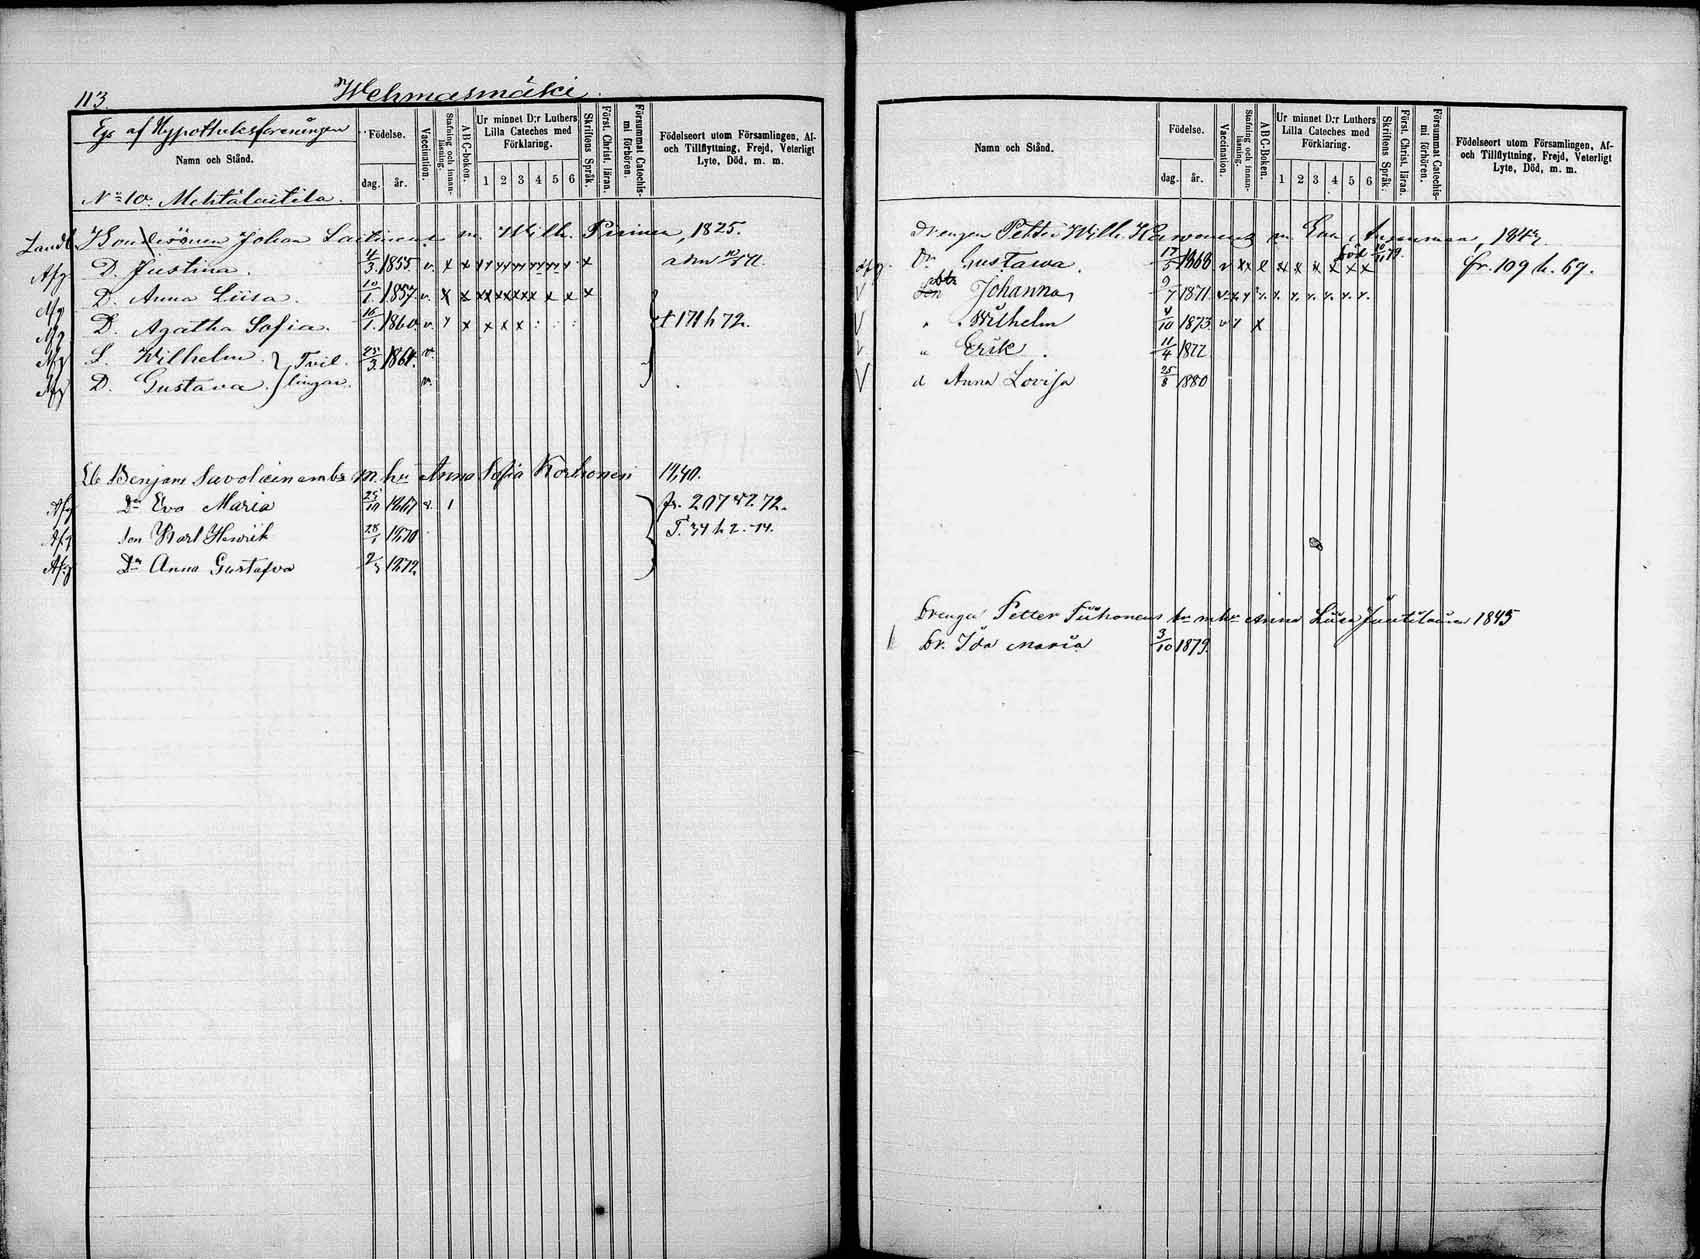 113
Wehmasmäki.
Egs af Hypotheksföreningen
Namn och Stånd.
Födelse.
dag. år.
Vaccination.
Stafning och innanläsning.
ABC-boken.
Ur minnet D:r Luthers Lilla Cateches med Förklaring.
1 2 3 4 5 6
Skriftens Språk.
Först. Christ. läran.
Försummat Catechismi förhören.
Födelseort utom Församlingen, Af- och Tillflyttning, Frejd, Veterligt Lyte, Död, m. m.
No 10. Mehtälaitila.
Landb. Johan Laitinens m. Wilh. Pirinen, 1825.
Afg D. Justina. 4/3 1855. v. x x
Afg D. Anna Liisa. 10/1 1857. v. x x
Afg D. Agatha Sofia. 16/1 1860. v. y x x x x : : :
t 171 h 72.
Afg S. Wilhelm. } Tvil- 25/3 1864. v.
Afg D. Gustava. } lingar. v.
Lb Benjam Savolainens m. hu Anna Sofia Korhonen 1840.
Afg Dr Eva Maria 25/10 1867 v. 1
fr. 207 72.
Afg Son Karl Henrik 28/1 1870
T. 34 h 2. -74.
Afg Dr Anna Gustafva 1872.
Namn och Stånd.
Födelse.
dag. år.
Vaccination.
Stafning och innanläsning.
ABC-Boken.
Ur minnet D:r Luthers Lilla Cateches med Förklaring.
1 2 3 4 5 6
Skriftens Språk.
Först. Christ. läran.
Försummat Catechismi förhören.
Födelseort utom Församlingen, Af- och Tillflyttning, Frejd, Veterligt Lyte, Död, m. m.
Drengen Petter Wilh. m. Eva
afg. Dr. Gustawa. 17/5 1868 v xx
fr. 109 h. 69.
V Johanna, 9/7 1871
V " Wilhelm 4/10 1873 v y x
V " Erik. 11/4 1877
V d Anna Lovisa 25/8 1880
Drengen Petter m hu Anna Liisa 1845
Dr. Ida Maria 3/10 1879.